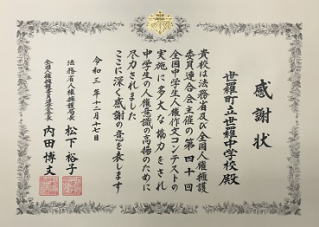 感謝状
世羅町立世羅中学校殿
貴校は法務省及び全国人権擁護
委員連合会主催の第四十回
全国中学生人権作文コンテストの
実施に多大な協力をされ
中学生の人権意識の高揚のために
尽力されました
ここに深く感謝の意を表します
令和三年十二月十七日
法務省人権擁護局長 松下裕子
全国人権擁護委員連合会長 内田博文